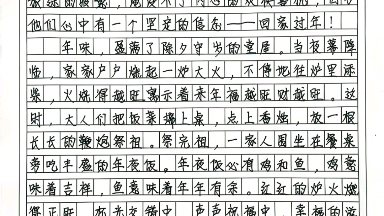 他们心中有一个坚定的信念——回家过年!
年味,盈满了除夕守岁的意居。当夜幕降
临,家家户户烧起一炉大火,不停地往炉里添
柴,火烧得越旺寓示着来年福越旺财越旺。这
时,大人们把饭菜端上桌,点上香烛,放一根
长长的鞭炮祭祖。祭完祖,一家人围坐在餐桌
旁吃丰盛的年夜饭。年夜饭必有鸡和鱼,鸡意
味着吉祥,鱼意味着年年有余。红红的炉火燃
得正旺,杯光交错中,声声祝福中,幸福的